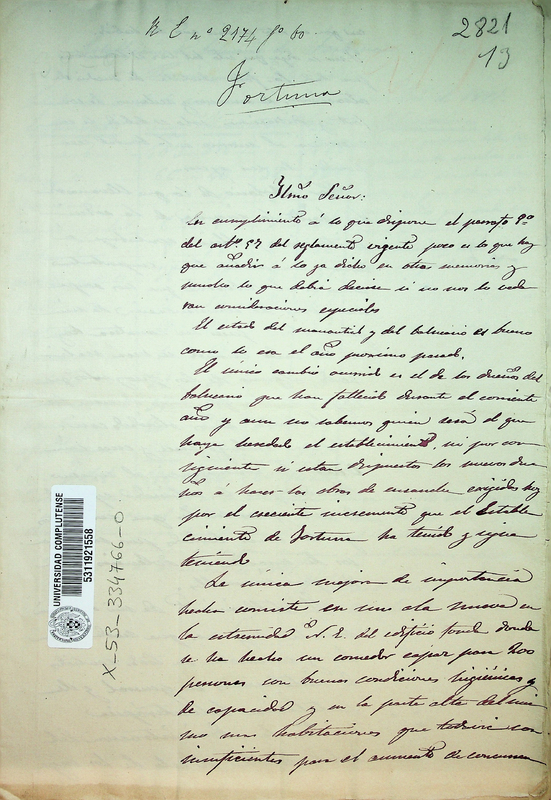 2821
13
R L nº 2174 fº 60.
Fortuna
Ilmo Señor:
En cumplimiento á lo que dispone el parrafo 9º
del artº 57 del reglamento vigente poco es lo que hay
que añadir á lo ya dicho en otras memorias y
mucho lo que debia decirse si no nos lo veda
ran consideraciones especiales
El estado del manantial y del balneario es bueno
como lo era el año proximo pasado.
El único cambio ocurrido es el de los dueños del
balneario que han fallecido durante el corriente
año y aun no sabemos quien será el que
haya heredado el establecimiento, ni por con
siguiente si estan dispuestos los nuevos due
ños á hacer las obras de ensanche exigidas hoy
por el creciente incremento que el Estable
cimiento de Fortuna ha tenido y sigue
teniendo
La única mejora de importancia
hecha consiste en un ala nueva en
la estremidad N. E. del edificio fonda donde
se ha hecho un comedor capaz para 200
personas con buenas condiciones higiénicas y
de capacidad y en la parte alta del mis
mo unas habitaciones que todavia son
insuficientes para el aumento de concurren
UNIVERSIDAD COMPLUTENSE
5311921558
X-53-334766-0